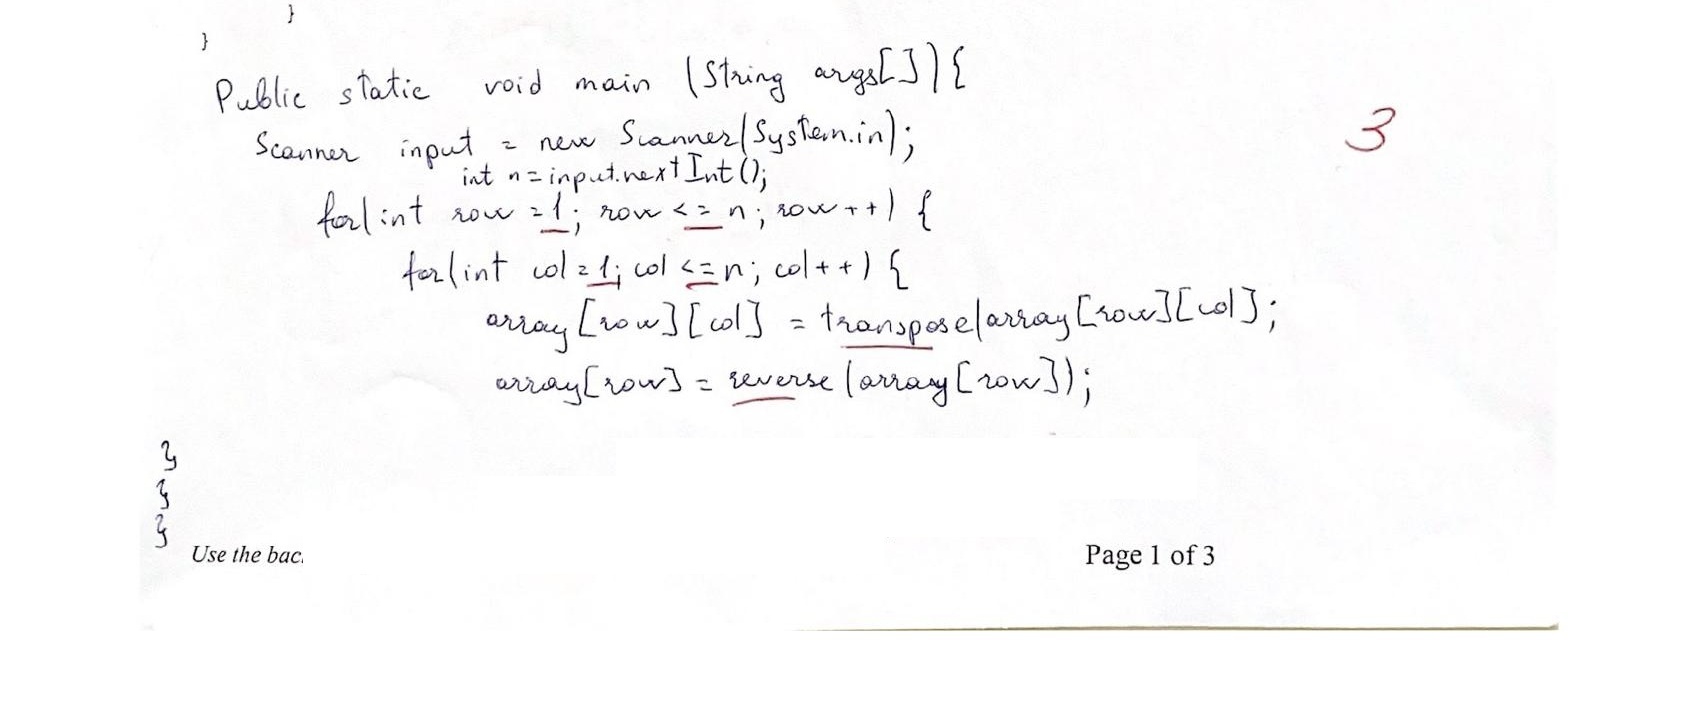 }
}
Public static void main (String args[]){
3
Scanner input = new Scanner(System.in);
int n = input.nextInt();
for(int row = 1; row <= n; row++) {
for(int col = 1; col <= n; col++) {
array[row][col] = transpose(array[row][col];
array[row] = reverse(array[row]);
}
}
}
Use the bac.
Page 1 of 3